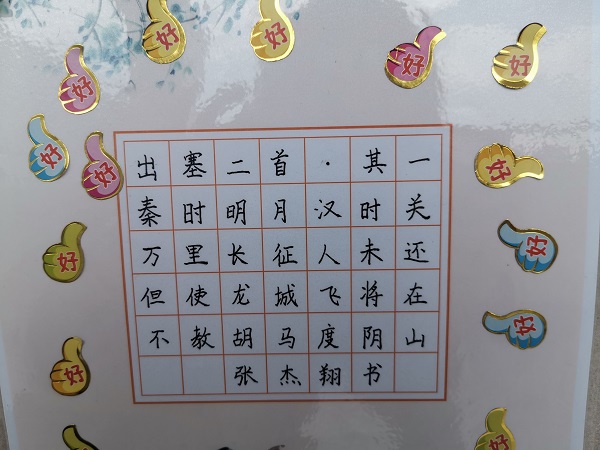 出塞二首·其一
秦时明月汉时关
万里长征人未还
但使龙城飞将在
不教胡马度阴山
张杰翔书
好
好
好
好
好
好
好
好
好
好
好
好
好
好